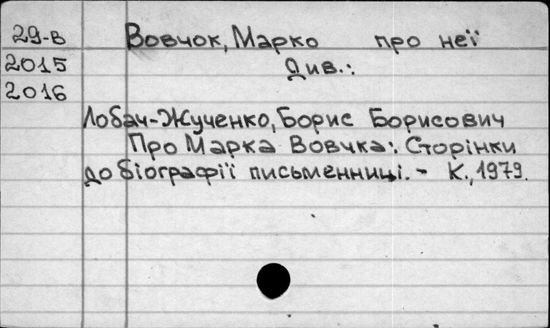 29-в Вовчок, Марко про неї
2015 Див.:
2016
Лобач-Жученко, Борис Борисович
Про Марка Вовчка: Сторінки
до біографії письменниці. - К., 1979.